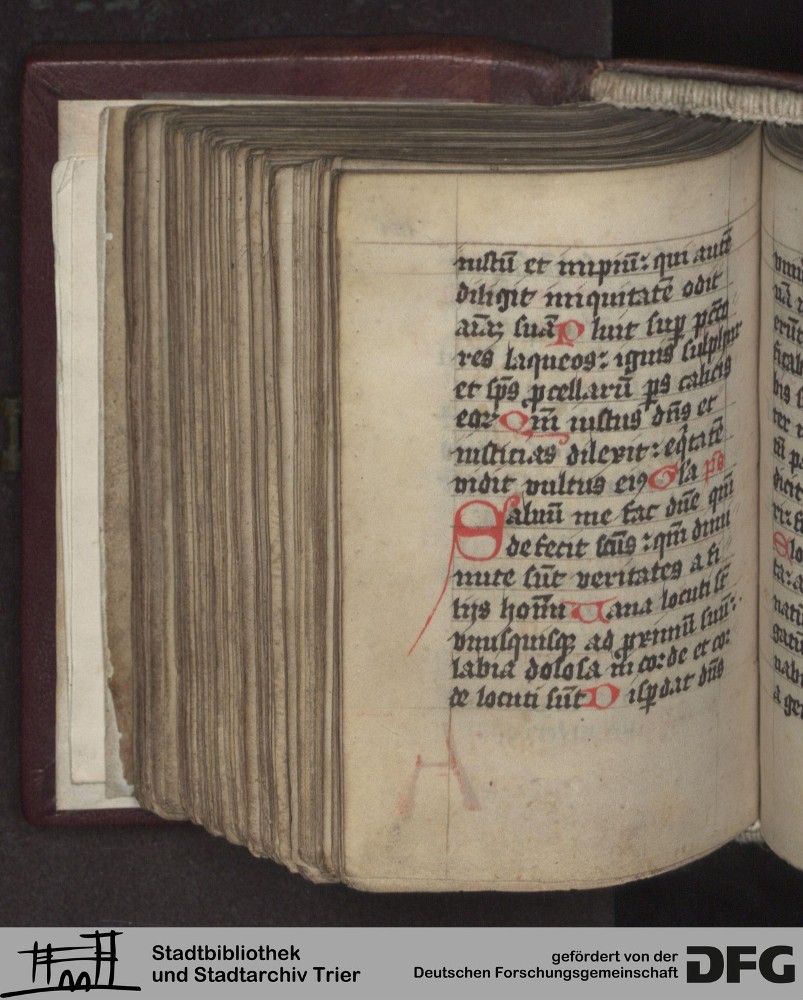 iustū et impiū: qui autē
diligit iniquitatē odit
aīaȝ suā Pluit sup̱ pctō
res laqueos: ignis sulphur
et sp̄s ꝓcellarū ps calicis
eoꝝ Qm̄ iustus dn̄s et
iusticias dilexit: eq̄tatē
vidit vultus eiꝰ Gla ps
Saluū me fac dn̄e qm̄
defecit scūs: qm̄ dimi
nute sūt veritates a fi
lijs hoīm Uana locuti st̄
vnusquisqȝ ad ꝓximū suū:
labia dolosa in corde et cor
de locuti sūt Disꝑdat dn̄s
A
Stadtbibliothek
und Stadtarchiv Trier
gefördert von der
Deutschen Forschungsgemeinschaft
DFG